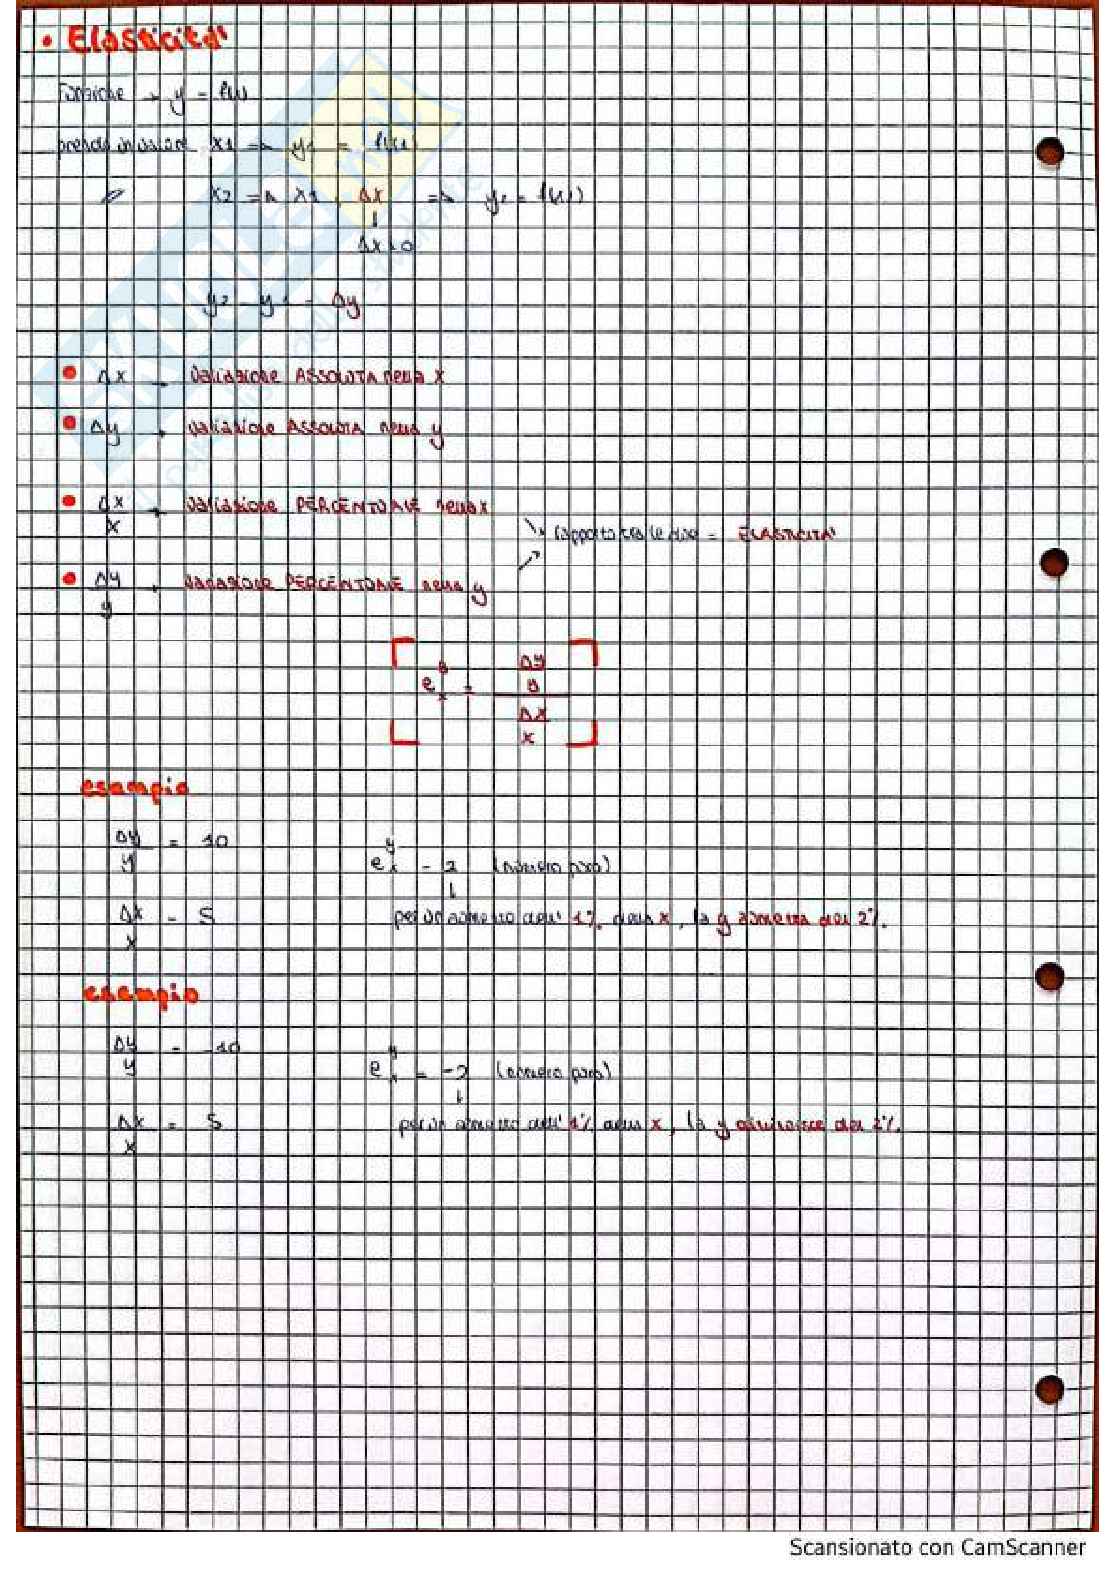 • Elasticità
Funzione → y = f(x)
prendo un valore x1 => y1 = f(x1)
" x2 => x1 + Δx => y2 = f(x2)
↓
Δx ≠ 0
y2 - y1 = Δy
• Δx → variazione ASSOLUTA nella x
• Δy → variazione ASSOLUTA nella y
• Δx/x → variazione PERCENTUALE nella x
rapporto tra le due = ELASTICITÀ
• Δy/y → variazione PERCENTUALE nella y
e^y_x = (Δy/y)/(Δx/x)
esempio
Δy/y = 10
e^y_x = 2 (numero puro)
↓
Δx/x = 5
per un aumento dell' 1% della x, la y aumenta del 2%.
esempio
Δy/y = -10
e^y_x = -2 (numero puro)
↓
Δx/x = 5
per un aumento dell' 1% della x, la y diminuisce del 2%.
Scansionato con CamScanner